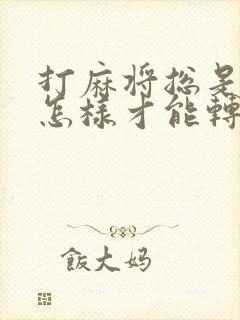 打麻将总是
怎樣才能轉
飯大妈